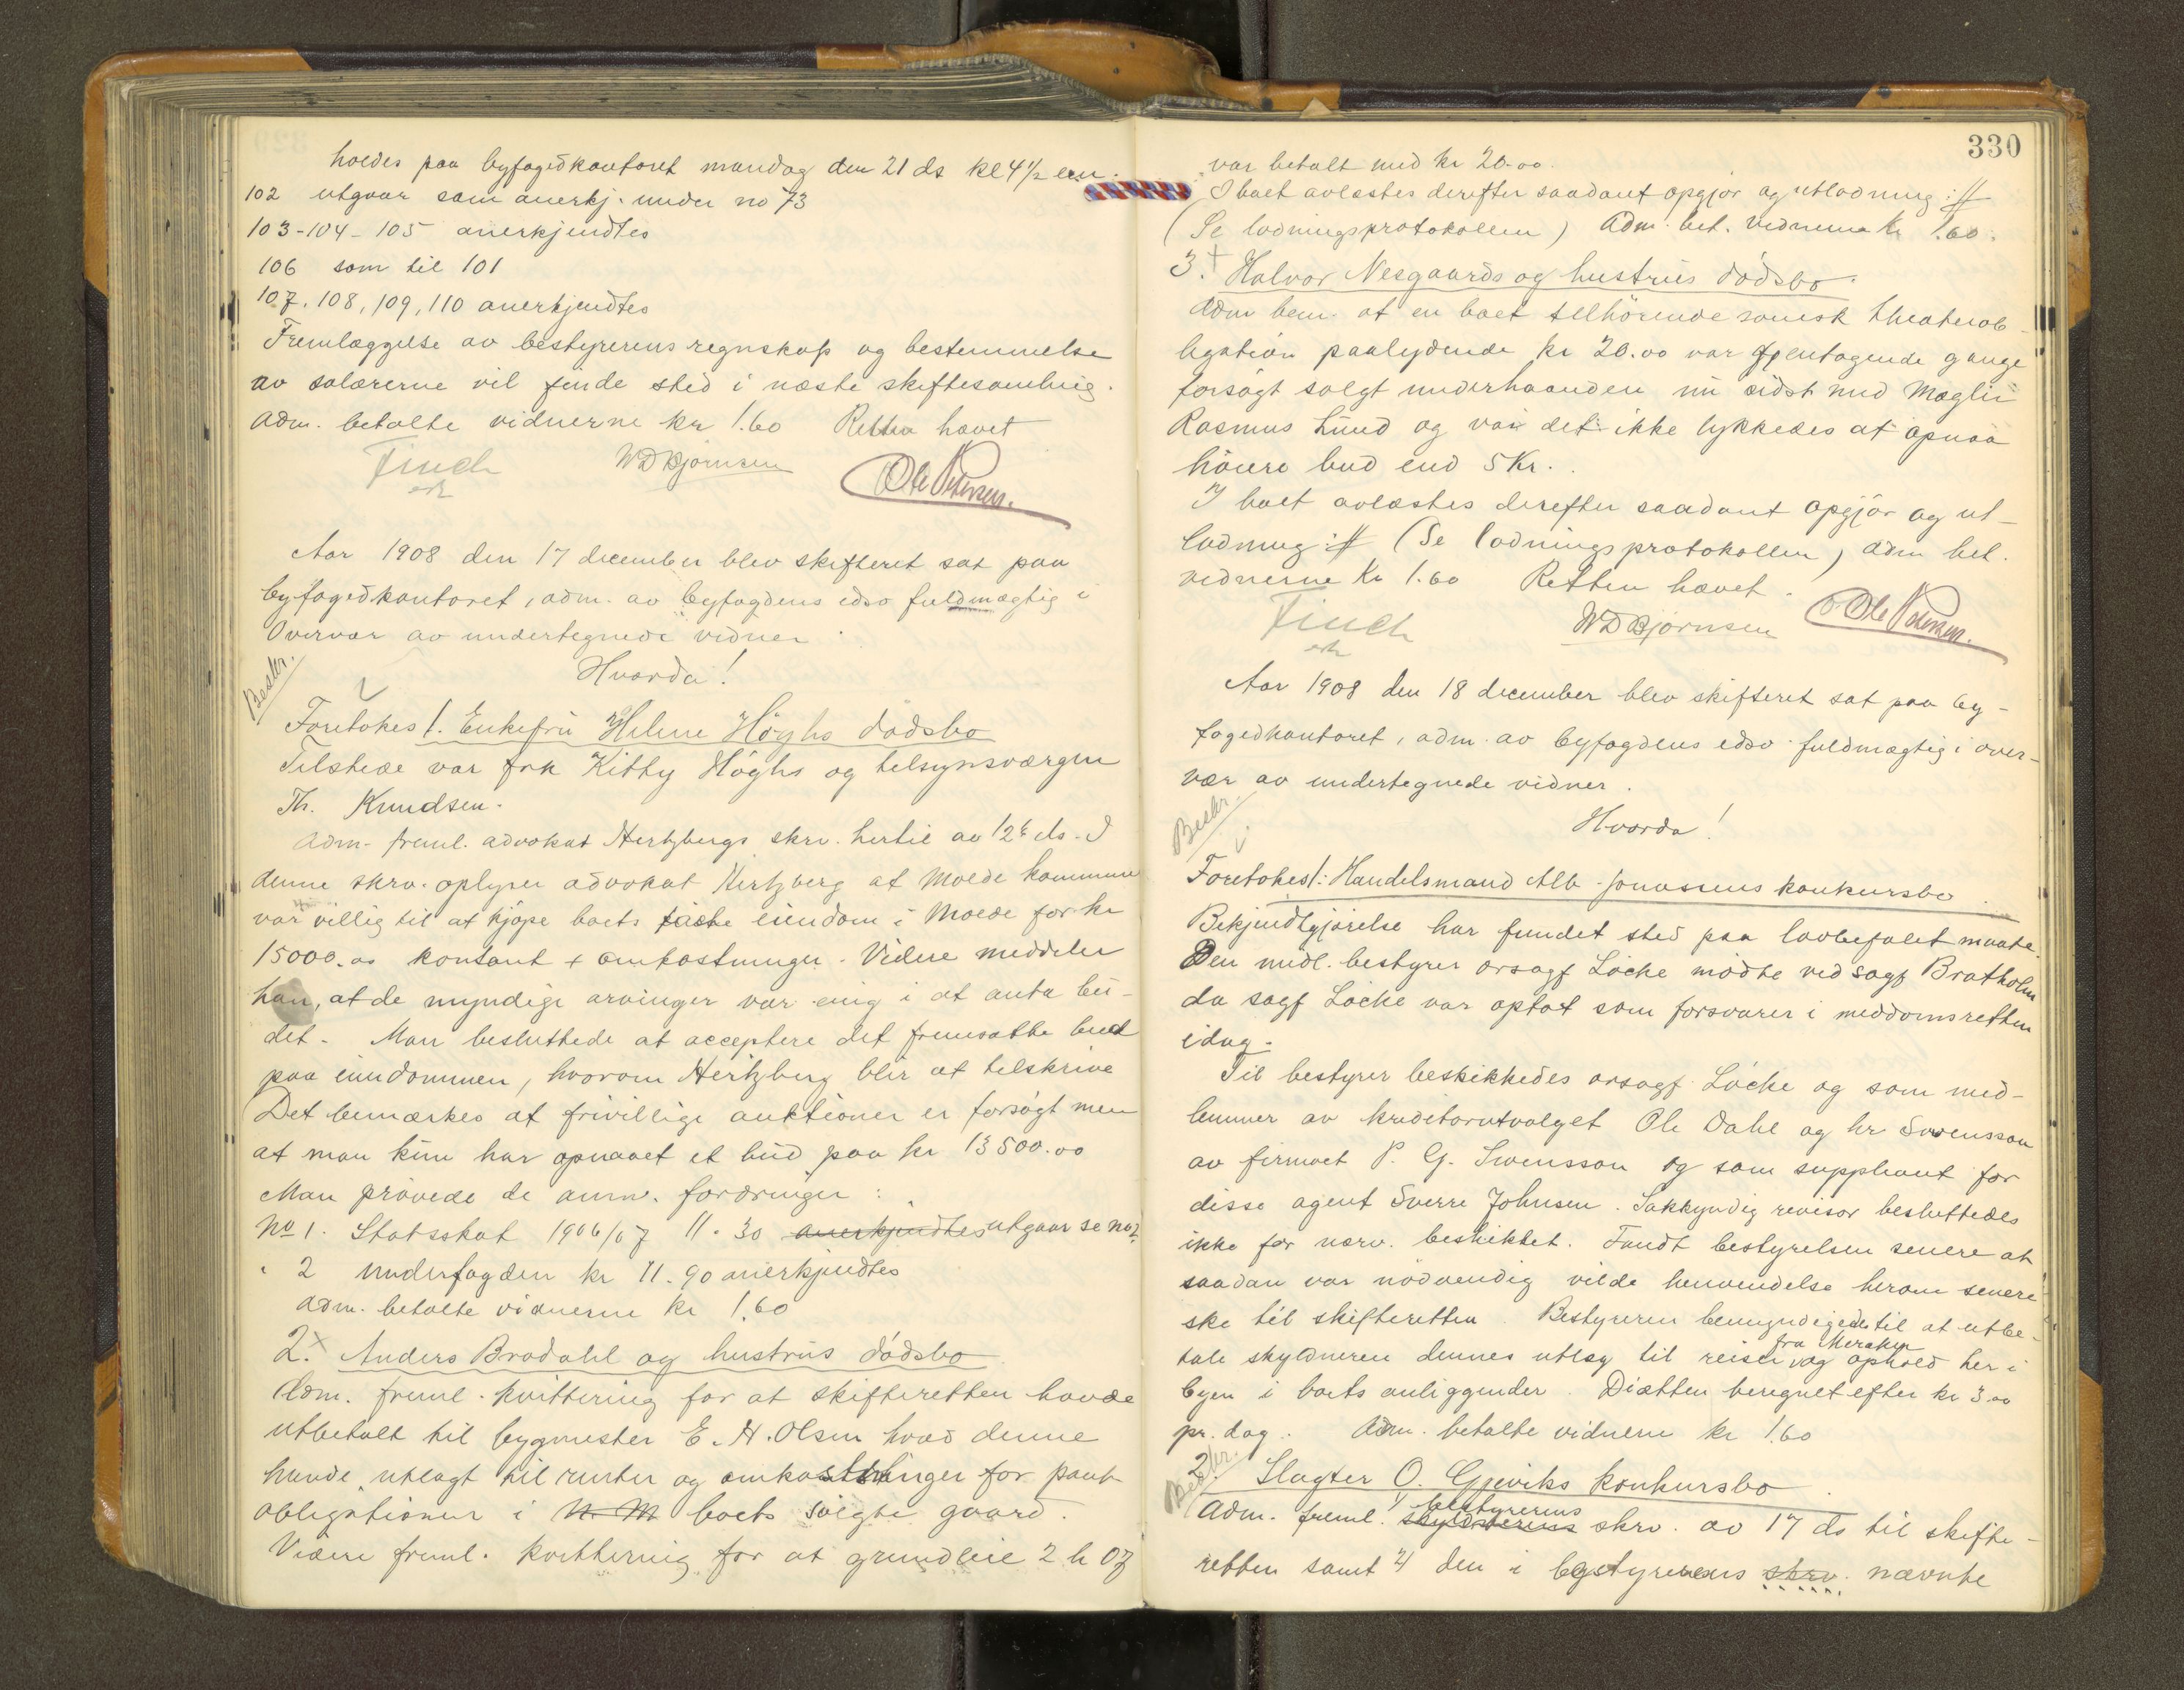 holdes paa byfogedkontoret mandag den 21 ds kl 4 1/2 em.
102 utgaar som anerkj. under no 73
103-104-105 anerkjendtes
106 som til 101
107, 108, 109, 110 anerkjendtes
Fremlæggelse av bestyrerens regnskap og bestemmelse
av salærerne vil finde sted i næste skiftesamling.
Adm. betalte vidnerne kr 1.60 Retten hævet
Finch
WDBjørnsen
Ole Petersen.
Aar 1908 den 17 december blev skifteret sat paa
byfogedkontoret, adm. av byfogdens edsv fuldmægtig i
Overvær av undertegnede vidner
Hvorda!
Beskr.
Foretokes 1. Enkefru Helene Höghs dödsbo
Tilstede var frk Kitty Höghs og tilsynsværgen
Th. Knudsen.
Adm. freml. advokat Hertzbergs skr. hertil av 12te ds. I
denne skrv. oplyser advokat Hertzberg at Molde kommune
var villig til at kjöpe boets faste eiendom i Molde for kr
15000.00 kontant + omkostninger. Videre meddeler
han, at de myndige arvinger var enig i at anta bu-
det. Man besluttede at acceptere det fremsatte bud
paa eiendommen, hvorom Hertzberg blir at tilskrive
Det bemærkes at frivillige auktioner er forsögt men
at man kun har opnaaet et bud paa kr 13500.00
Man prövede de anm. fordringer:
No 1. Statsskat 1906/07 11.30 anerkjendtes utgaar se no 2
" 2 Underfogden kr 11.90 anerkjendtes
Adm. betalte vidnerne kr 1.60
2. Anders Brodahl og hustrus dödsbo
Adm. freml. kvittering for at skifteretten havde
utbetalt til bygmester E. H. Olsen hvad denne
havde utlagt til renter og omkostninger for pant-
obligationer i N. M boets solgte gaard.
Videre freml. kvittering for at grundleie 2 h 07
330
var betalt med kr 20.00.
I boet avlæstes derefter saadant opgjör og utlodning: //
(Se lodningsprotokollen) Adm. bet. vidnerne kr 1.60.
3. Halvor Nesgaards og hustrus dödsbo.
Adm bem. at en boet tilhörende theaterob-
ligation paalydende kr 20.00 var gjentagende gange
forsögt solgt underhaanden nu sidst med Mægler
Rasmus Lund og var det ikke lykkedes at opnaa
höiere bud end 5 Kr.
I boet avlæstes derefter saadant opgjör og ut-
lodning: // (Se lodningsprotokollen) Adm bet.
vidnerne kr 1.60 Retten hævet.
Finch
WDBjørnsen
Ole Petersen.
Aar 1908 den 18 december blev skifteret sat paa by-
fogedkontoret, adm. av byfogdens edsv. fuldmægtig i over-
vær av undertegnede vidner.
Hvorda!
Beskr.
Foretokes 1: Handelsmand Alb. Jonassens konkursbo
Bekjendtgjörelse har fundet sted paa lovbefalet maate.
Den midl. bestyrer orsagf Löcke mödte ved sagf Bratholm
da sagf Löcke var optat som forsvarer i meddomsretten
idag.
Til bestyrer beskikkedes orsagf. Löcke og som med-
lemmer av kreditorutvalget Ole Dahl og hr Svensson
av firmaet P. G. Svensson og som suppleant for
disse agent Sverre Johnsen. Sakkyndig revisor besluttedes
ikke for nærv. beskikket. Fandt bestyrelsen senere at
saadan var nödvendig vilde henvendelse herom senere
ske til skifteretten. Bestyreren bemyndigedes til at utbe-
fra Meraker
tale skyldneren dennes utlæg til reiser og ophold her i
byen i boets anliggender. Diætten beregnet efter kr 3.00
pr. dag. Adm. betalte vidnerne kr 1.60
Beskr.
2. Slagter O. Gjeviks konkursbo
bestyrerens
Adm. freml. skyldnerens skrv. av 17 ds til skifte-
retten samt den i bestyrerens skrv. nævnte